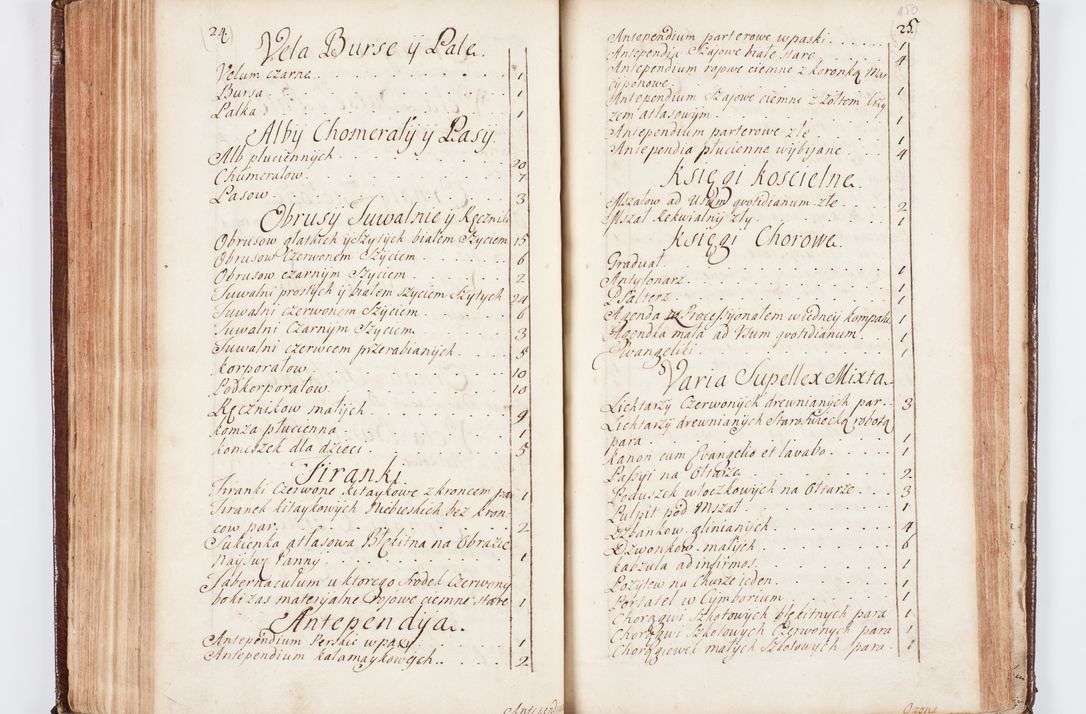 24
Vela Burse ÿ Pale.
Velum czarne 1
Bursa 1
Palka 1
Alby Chomerały ÿ Pasy.
Alb płuciennych 20
Chumerałow 7
Pasow 3
Obrusy Tuwalnie ÿ Ręczniki
Obrusow gładkich ÿ szytych białem szyciem 15
Obrusow Czerwonem szyciem 6
Obrusow czarnym szyciem 2
Tuwalni prostych ÿ białem szyciem szytych 24
Tuwalni czerwonem szyciem 6
Tuwalni Czarnym szyciem 3
Tuwalni czerwcem przerabianych 5
Korporałow 10
Podkorporałow 10
Ręcznikow małych 9
Komza płucienna 1
Komeszek dla dzieci 5
Firanki
Firanki Czerwone kitaykowe z kroncem par 1
Firanek kitaykowych Niebieskich bez kron-
cow par 2
Sukienka atłasowa Błękitna na Obrazie
Nayśwy Panny 1
Tabernaculum u ktorego srodek Czerwony
boki zas materyalne rojowe ciemne stare 1
Antependya.
Antependium Perskie w pasy 1
Antependium kałamaykowych 2
Antependiu
150
25
Antependium parterowe w paski 1
Antependia Szajowe białe stare 4
Antependium rojowe ciemne z koronką Mar
cyponowe 1
Antependium Szajowe ciemne z żołtem krzy
zem atłasowym 1
Antependium parterowe złe 1
Antependia płucienne wybyiane 4
Księgi koscielne
Mszałow ad Usum quotidianum złe 2
Mszał Rekwialny zły 1
Księgi Chorowe.
Graduał 1
Antyfonarz 1
Psałterz 1
Agenda z Processyonałem w iedney kompak: 1
Agendka mała ad Usum quotidianum 1
Ewangeliki 1
Varia Supellex Mixta
Lichtarzy Czerwonych drewnianych par 3
Lichtarzy drewnianych Staroswiecką robotą
para 1
Kanon cum Evangelio et lavabo 1
Passyi na Ołtarze 2
Poduszek włoczkowych na Ołtarze 3
Pulpit pod Mszał 1
Dzbankow glinianych 4
Dzwonkow małych 6
Kapzuła ad infirmos 1
Pozytew na Churze ieden 1
Portatel w Cymborium 1
Chorągwi Szkołowych błękitnych para 1
Chorągwi Szkołowych Czerwonych para 1
Chorągiewek małych Szkołowych para 1